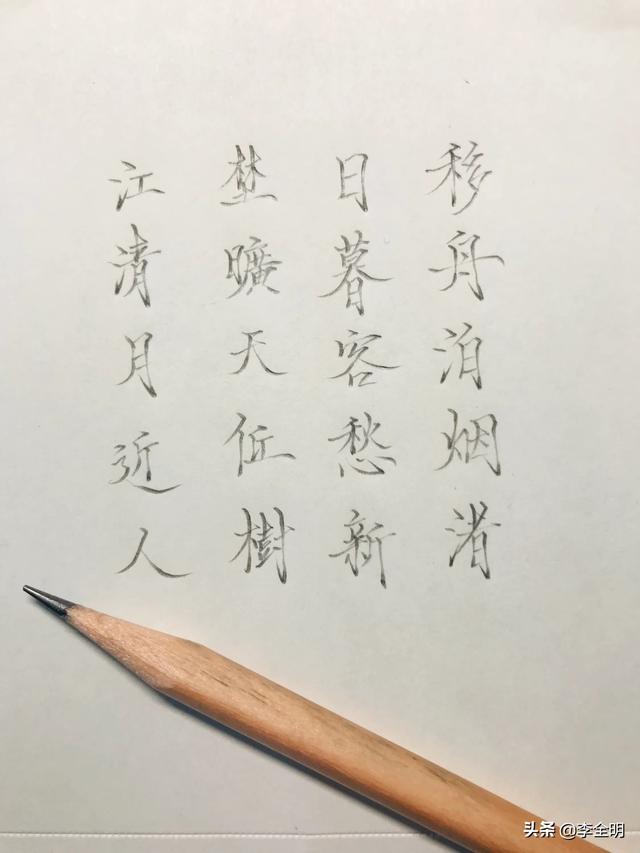 移舟泊烟渚
日暮客愁新
埜曠天低樹
江清月近人
头条 @李全明